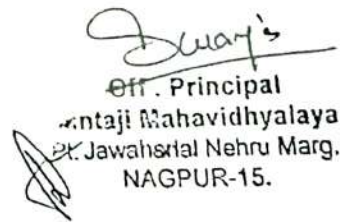 Off. Principal
ntaji Mahavidhyalaya
Pt. Jawaharlal Nehru Marg,
NAGPUR-15.